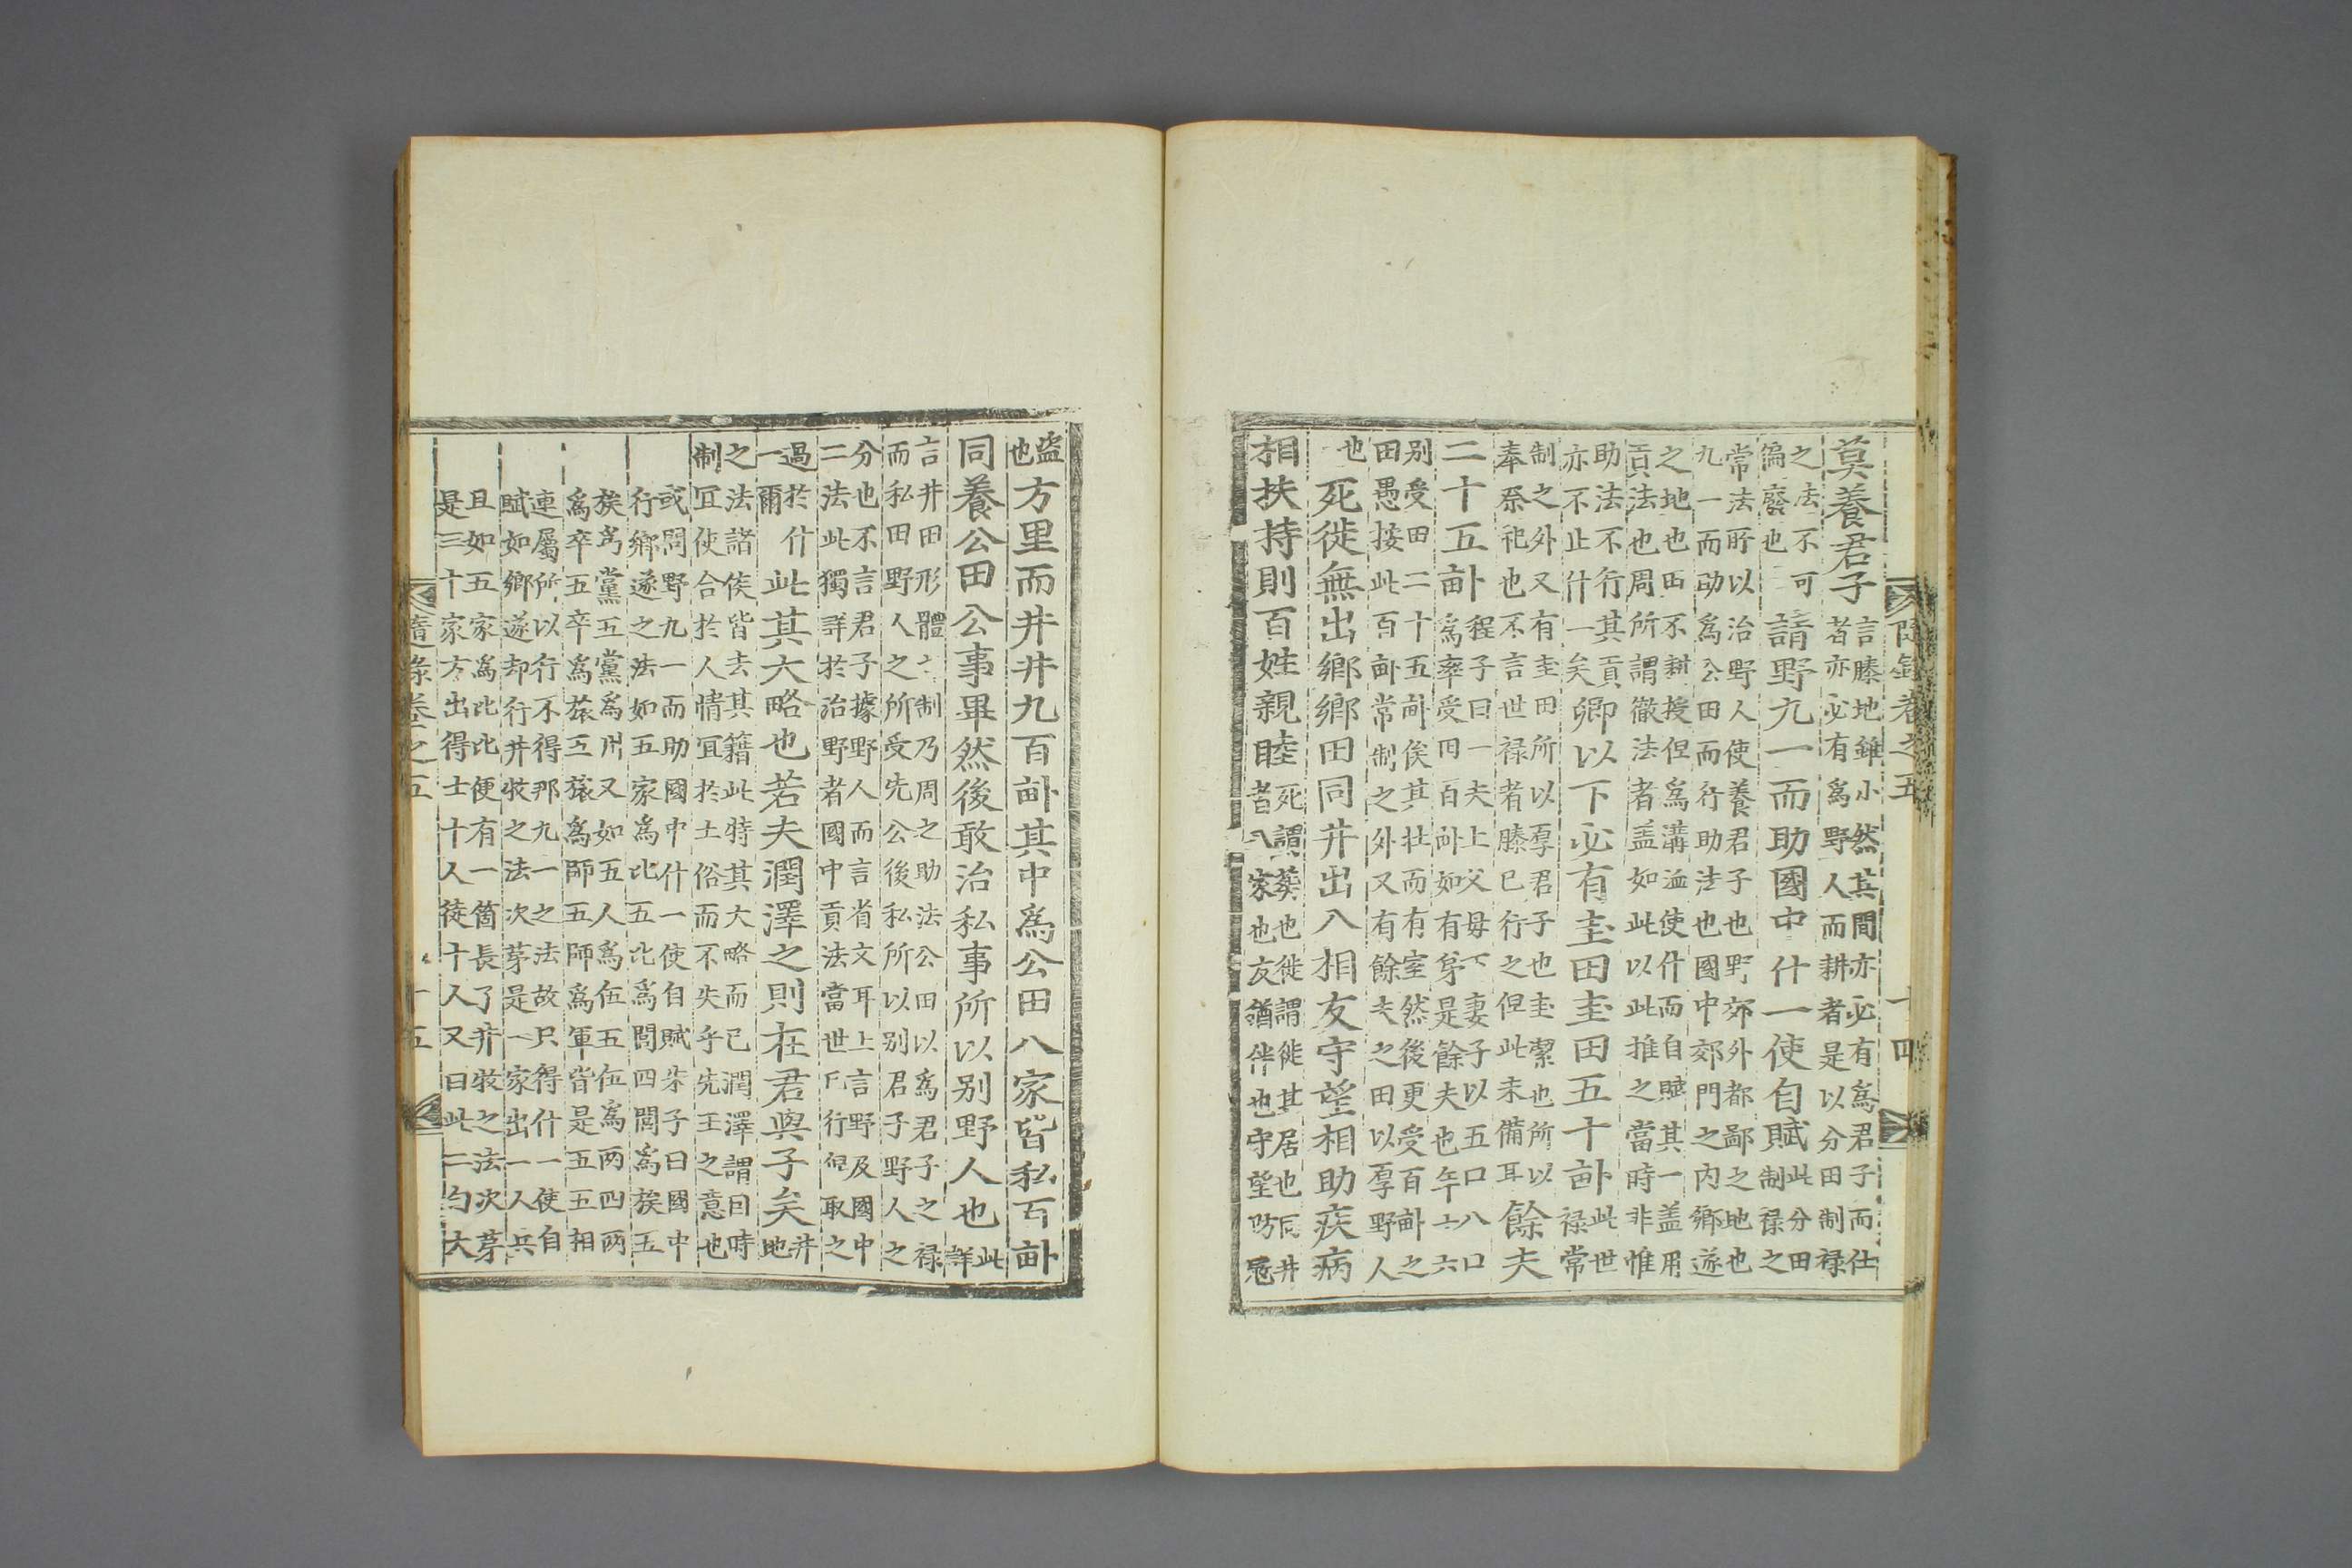 隨錄卷之五 十四
莫養君子言滕地雖小然其間亦必有爲君子而仕
者亦必有爲野人而耕者是以分田制禄
之法不可
偏廢也請野九一而助國中什一使自賦此分田
制禄之
常法所以治野人使養君子也野郊外都鄙之地也
九一而助爲公田而行助法也國中郊門之内鄉遂
之地也田不耕授但爲溝洫使什而自賦其一盖用
貢法也周所謂徹法者盖如此以此推之當時非惟
助法不行其貢
亦不止什一矣卿以下必有圭田圭田五十畝此世
禄常
制之外又有圭田所以厚君子也圭潔也所以
奉祭祀也不言世禄者滕已行之但此未備耳餘夫
二十五畝程子曰一夫上父母下妻子以五口八口
爲率受田百畝如有弟是餘夫也年十六
别受田二十五畝俟其壯而有室然後更受百畝之
田愚按此百畝常制之外又有餘夫之田以厚野人
也死徙無出鄉鄉田同井出入相友守望相助疾病
相扶持則百姓親睦死謂葬也徙謂徙其居也同井
者八家也友猶伴也守望防冦
盜
也方里而井井九百畝其中爲公田八家皆私百畝
同養公田公事畢然後敢治私事所以别野人也此
詳
言井田形體之制乃周之助法公田以爲君子之禄
而私田野人之所受先公後私所以别君子野人之
分也不言君子據野人而言省文耳上言野及國中
二法此獨詳於治野者國中貢法當世已行但取之
過於什
一爾此其大略也若夫潤澤之則在君與子矣井
地
之法諸侯皆去其籍此特其大略而已潤澤謂因時
制宜使合於人情宜於土俗而不失乎先王之意也
或問野九一而助國中什一使自賦朱子曰國中
行鄉遂之法如五家爲比五比爲閭四閭爲族五
族爲黨五黨爲州又如五人爲伍五伍爲两四两
爲卒五卒爲旅五旅爲師五師爲軍皆是五五相
連屬所以行不得那九一之法故只得什一使自
賦如鄉遂却行井牧之法次苐是一家出一人兵
且如五家爲比比便有一箇長了井牧之法次苐
是三十家方出得士十人徒十人又曰此二句大
隨錄卷之五 十五